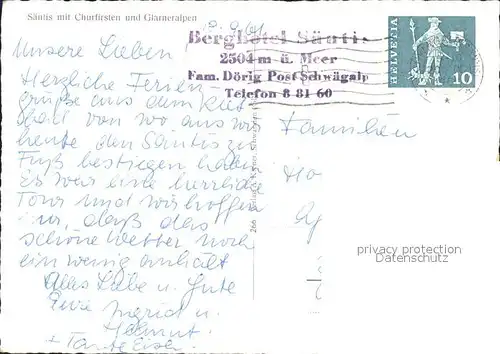 Säntis mit Churfirsten und Glarneralpen
Berghotel Säntis
2504 m ü. Meer
Fam. Dörig Post Schwägalp
Telefon 8 81 60
HELVETIA
10
Unsere Lieben
Herzliche Ferien-
grüsse aus dem
von wo aus wir
heute den Säntis zu
Fuß bestiegen haben
Es war eine herrliche
Tour und wir hoffen
nur, daß das
schöne Wetter noch
ein wenig anhält
Alles Liebe u. Gute
Eure Ingrid u.
Helmut.
+ Tante
Familien
privacy protection
266